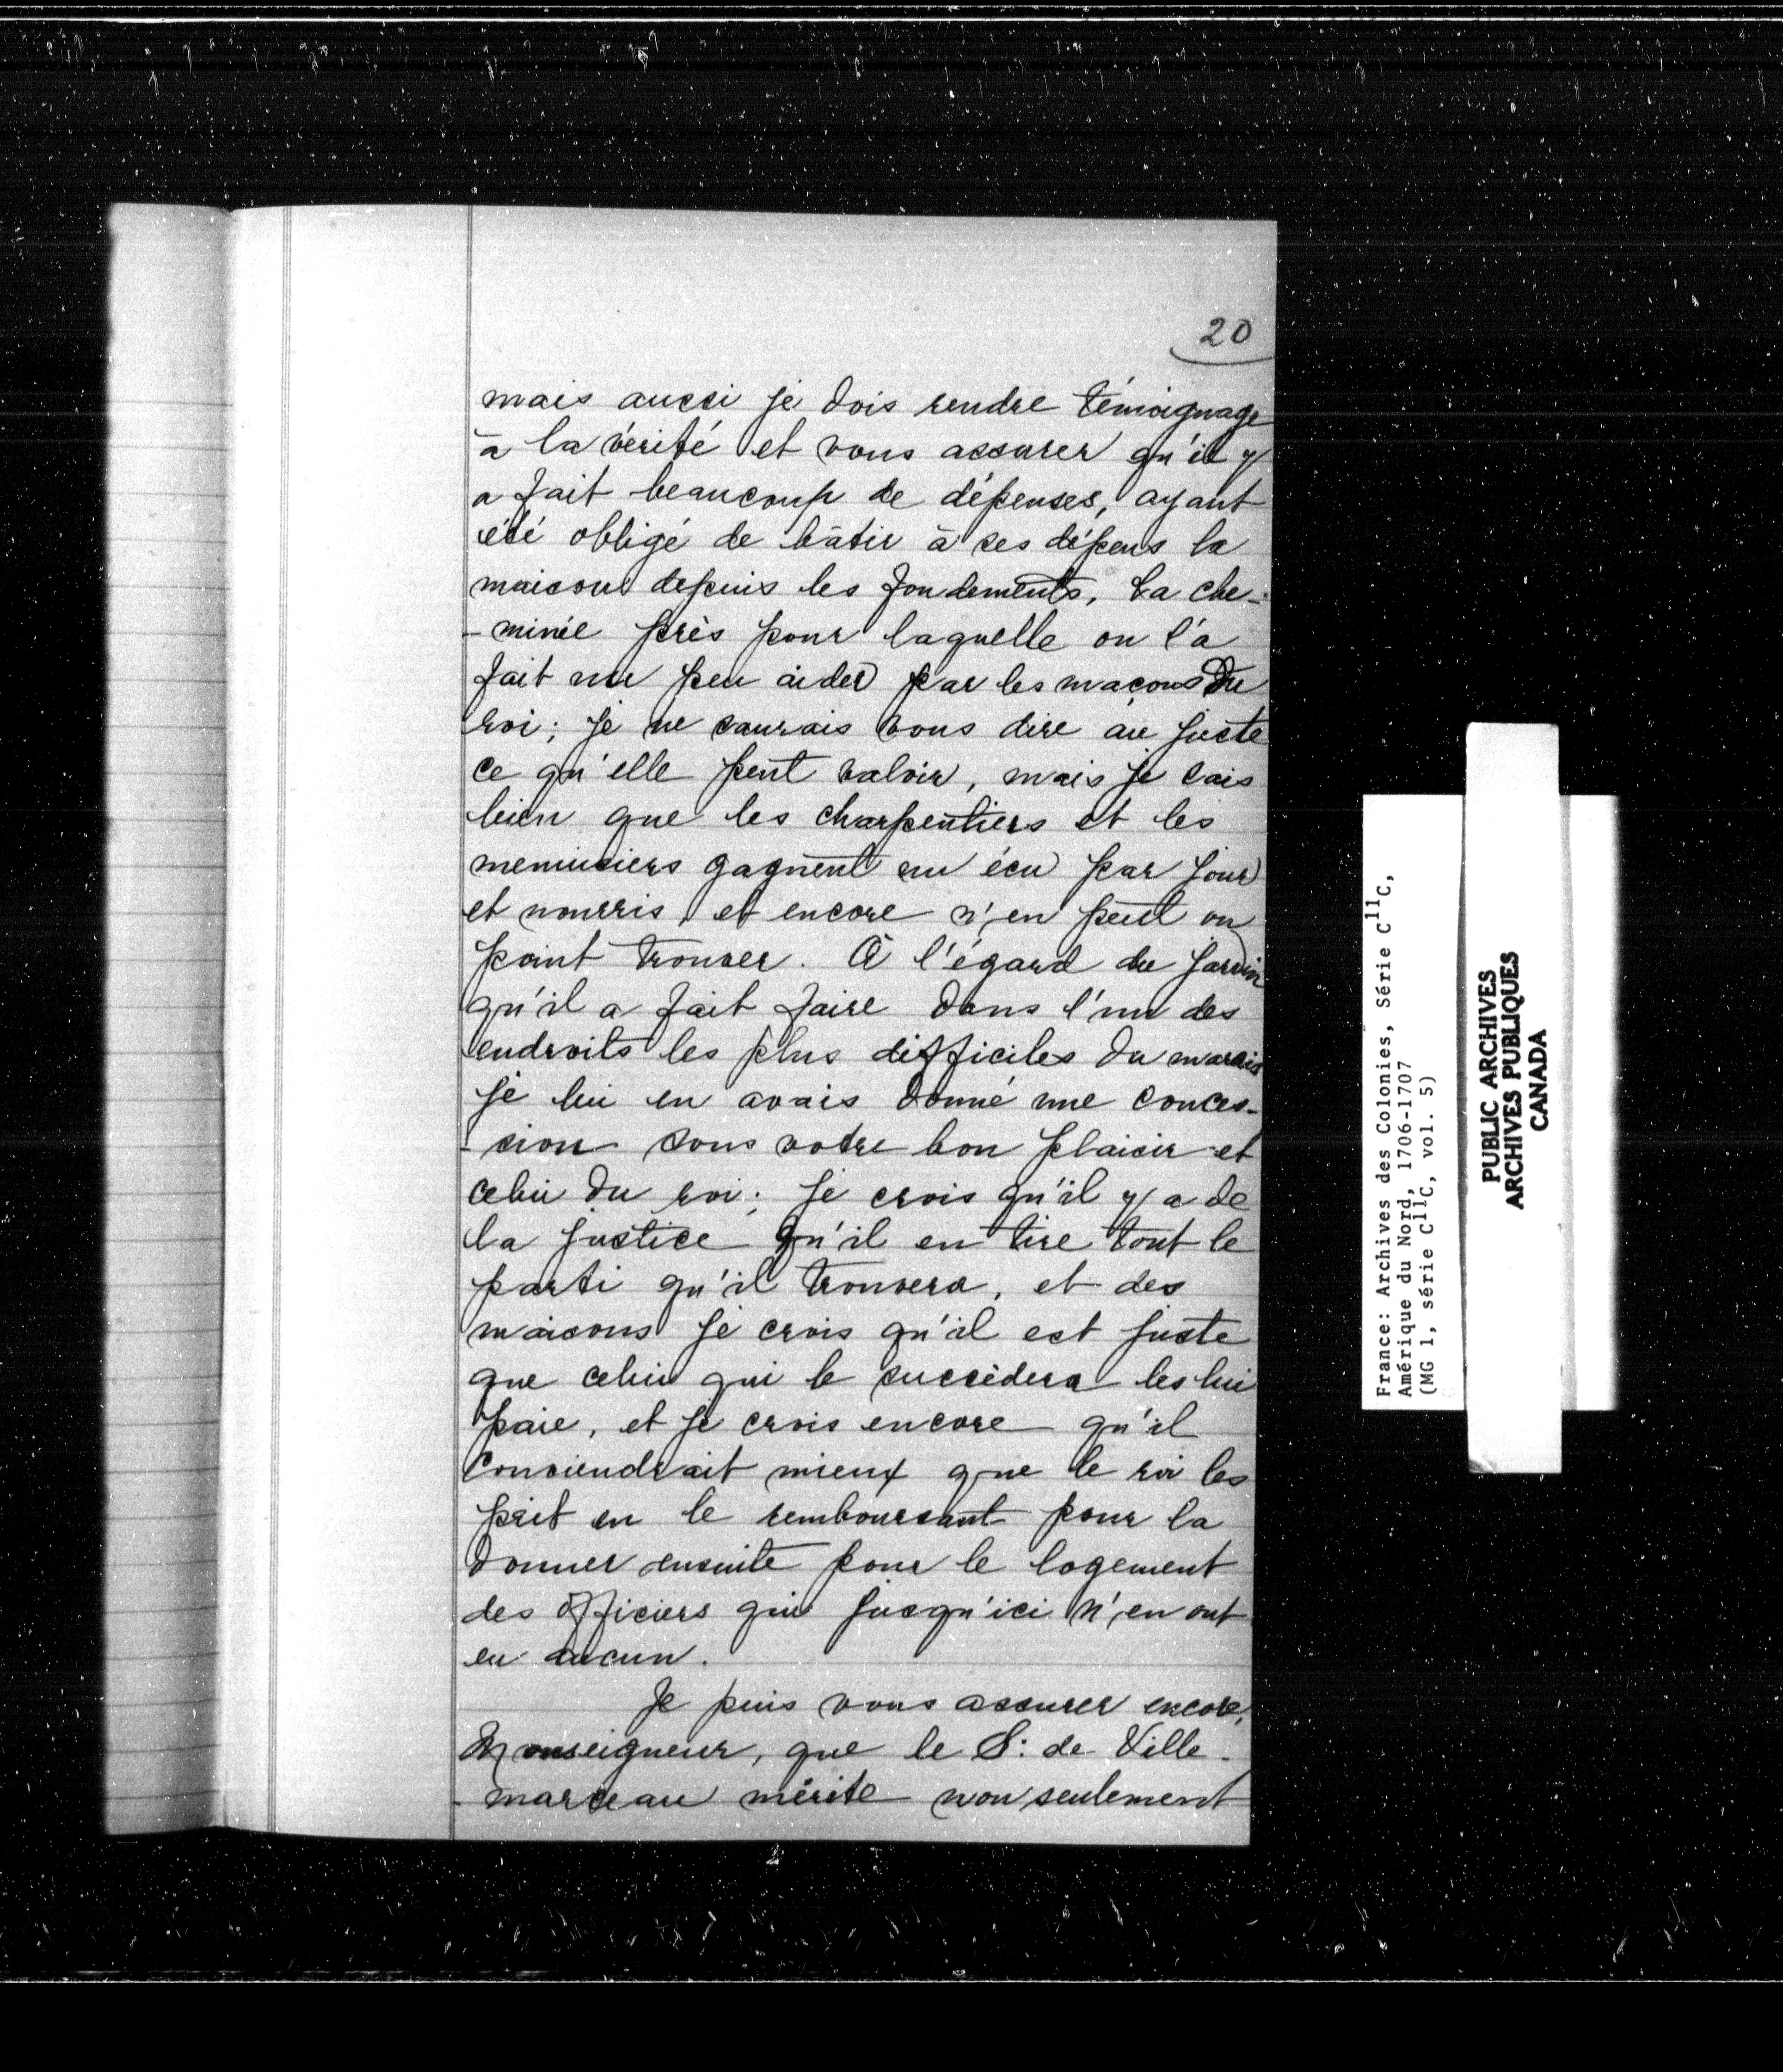 20
mais aussi je dois rendre témoignage
à la vérité et vous assurer qu'il y
a fait beaucoup de dépenses, ayant
été obligé de bâtir à ses dépens la
maison depuis les fondements, la che-
- minée près pour laquelle on l'a
fait un peu aider par les maçons du
roi; je ne saurais vous dire au juste
ce qu'elle peut valoir, mais je sais
bien que les charpentiers et les
menuisiers gagnent un écu par jour
et nourris, et encore n'en peut on
point trouver. À l'égard du jardin
qu'il a fait faire dans l'un des
endroits les plus difficiles du marais
je lui en avais donné une conces-
- sion sous votre bon plaisir et
celui du roi; je crois qu'il y a de
la justice qu'il en tire tout le
parti qu'il trouvera, et des
maisons je crois qu'il est juste
que celui qui le succèdera les lui
paie, et je crois encore qu'il
conviendrait mieux que le roi les
prit en le remboursant pour la
donner ensuite pour le logement
des officiers qui jusqu'ici n'en ont
eu aucun.
Je puis vous assurer encore,
Monseigneur, que le S: de Ville-
- marceau mérite non seulement
France: Archives des Colonies, Série C11C,
Amérique du Nord, 1706-1707
(MG 1, série C11C, vol. 5)
PUBLIC ARCHIVES
ARCHIVES PUBLIQUES
CANADA